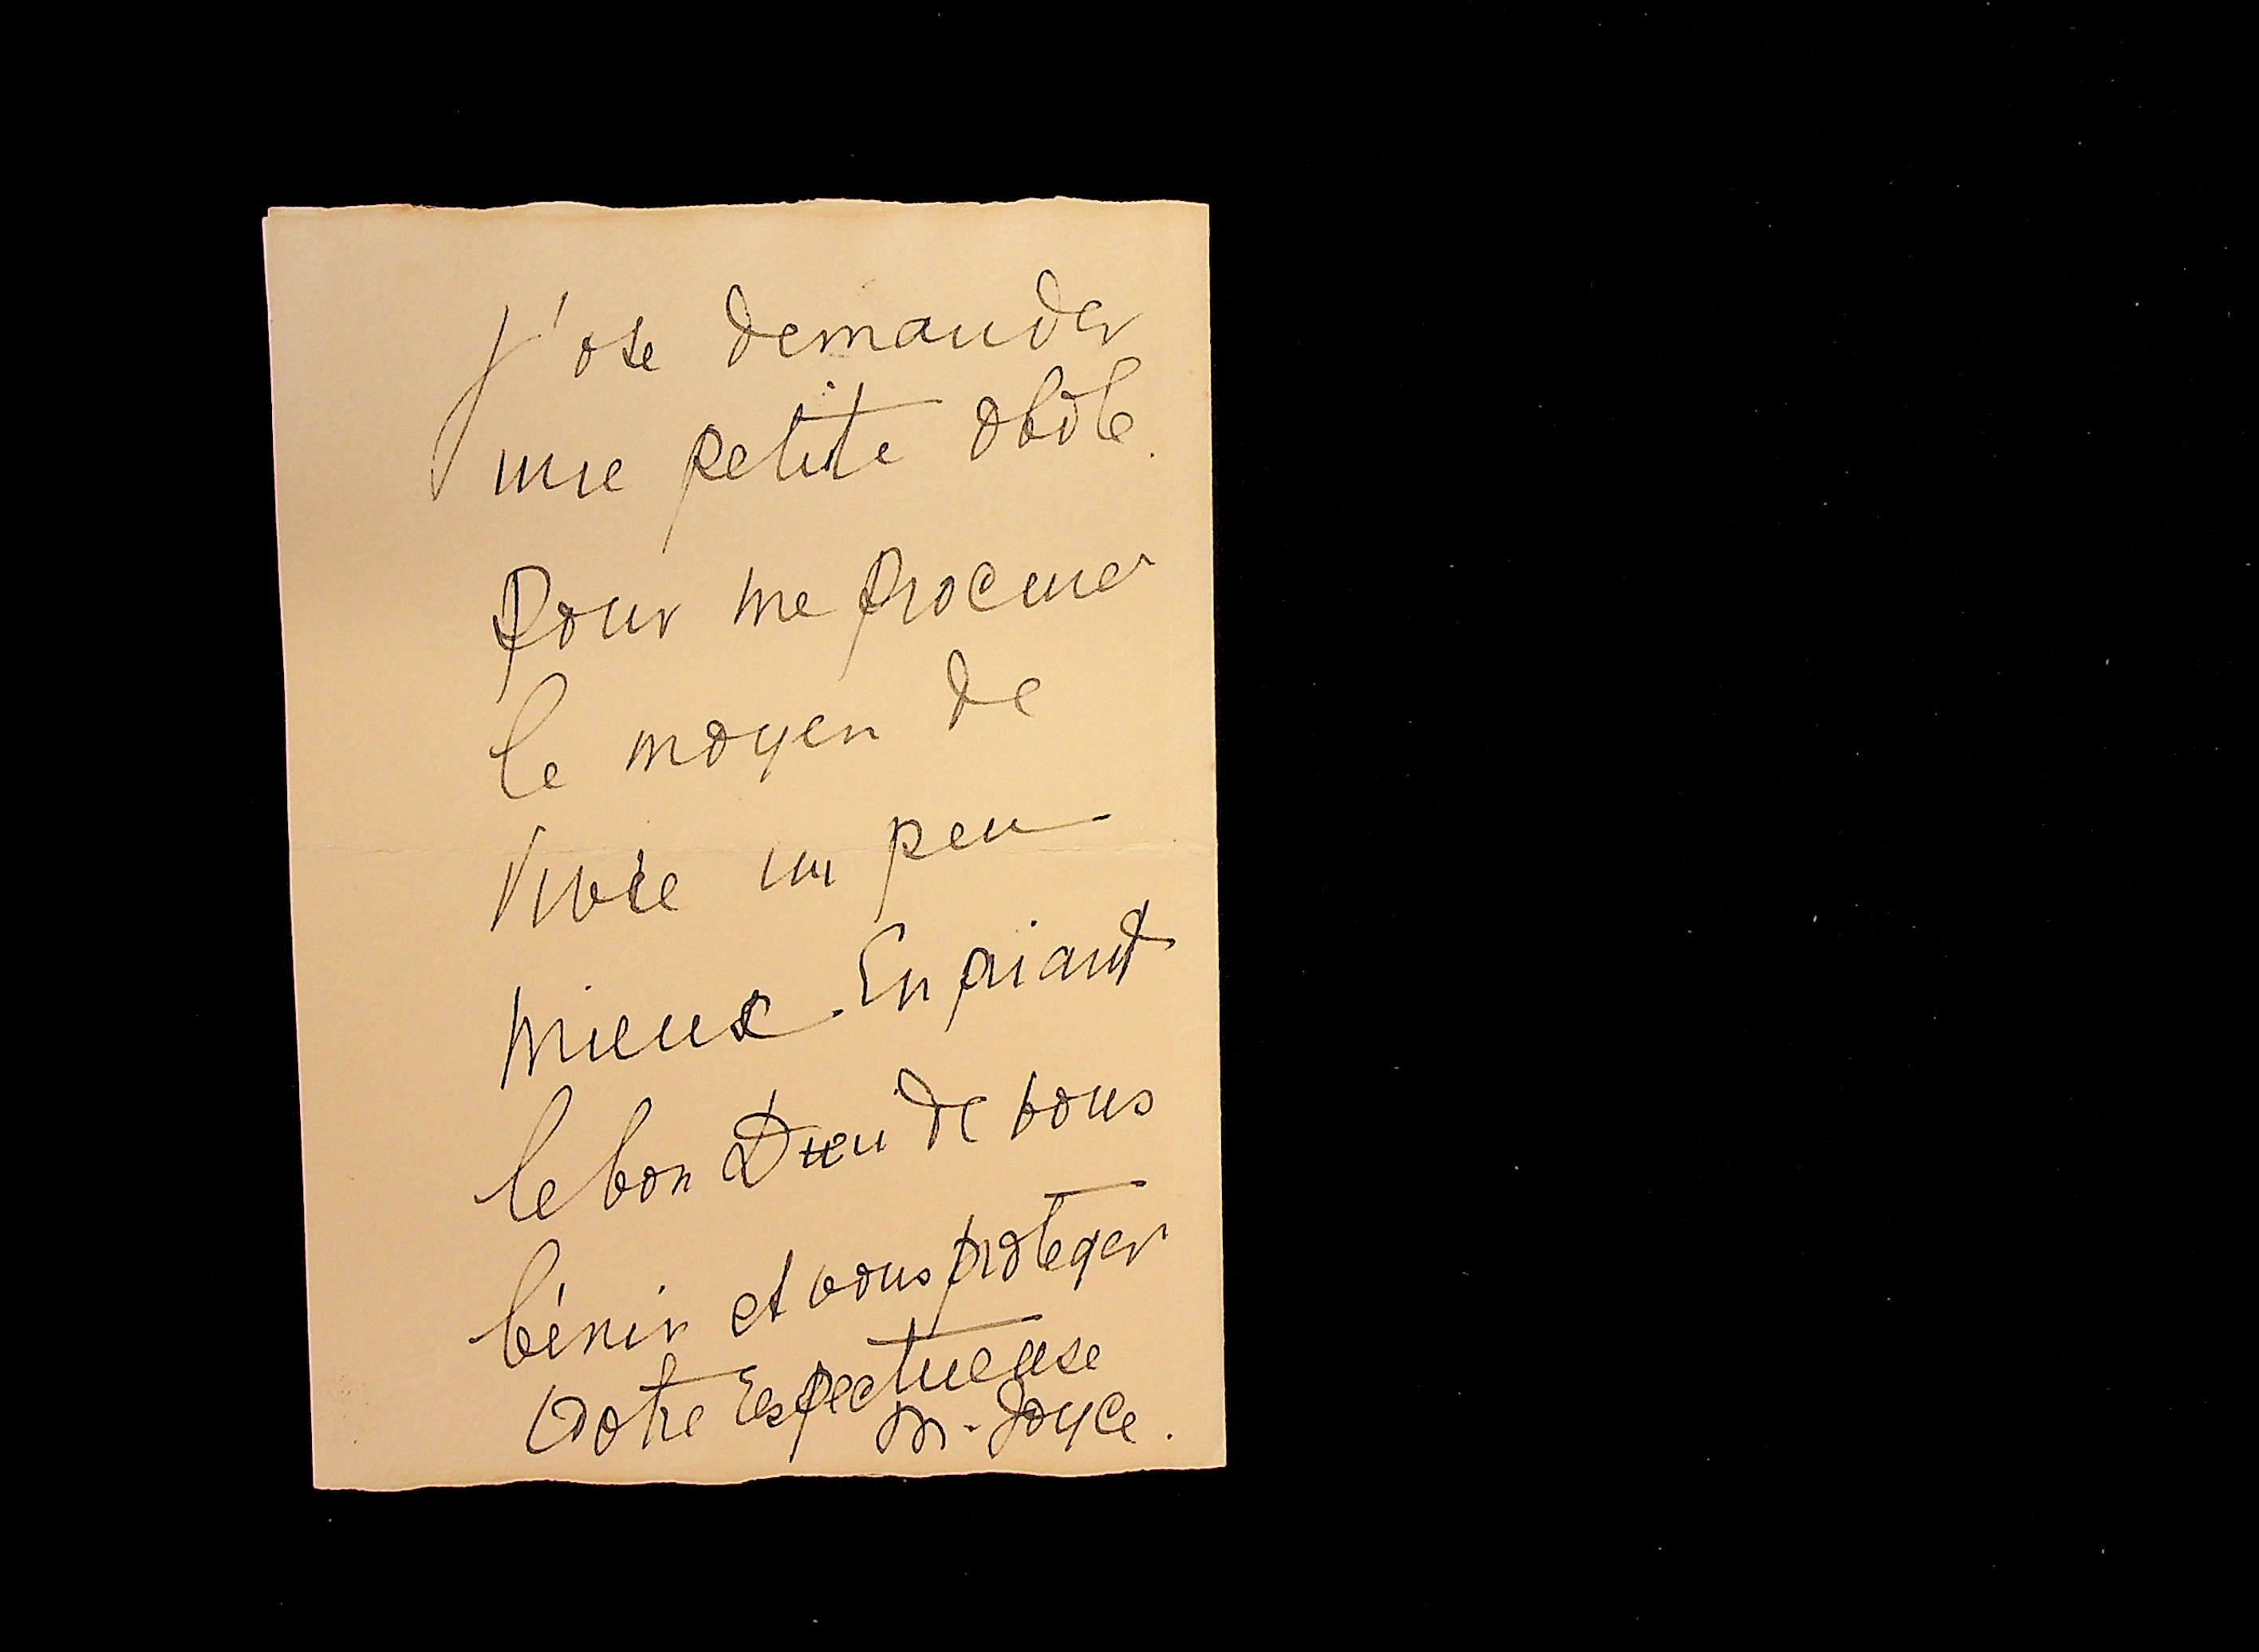 J'ose demander
une petite obole
pour me procurer
le moyen de
vivre un peu
mieux. En priant
le bon Dieu de vous
bénir et vous protéger
Votre respectueuse
M. Joyce.